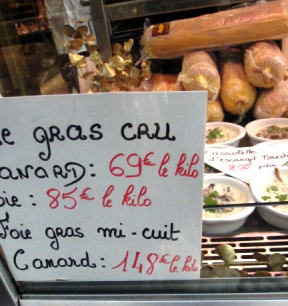 e GRAS CRU
ANARD: 69€ le kilo
oie: 85€ le kilo
Foie gras mi-cuit
Canard: 148€ le kilo
Cassolette
d'escargot
8€50